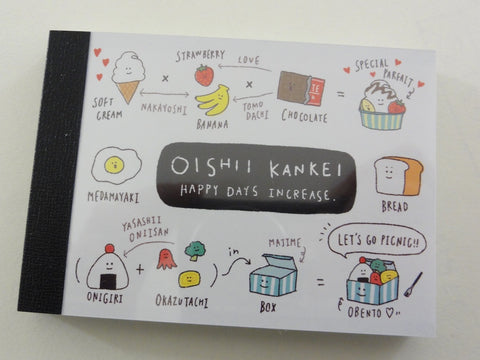 STRAWBERRY
LOVE
SPECIAL
PARFAIT
×
×
=
SOFT
CREAM
NAKAYOSHI
BANANA
TOMO
DACHI
CHOCOLATE
OISHII KANKEI
HAPPY DAYS INCREASE.
MEDAMAYAKI
BREAD
YASASHII
ONIISAN
in
MAJIME
LET'S GO PICNIC!!
+
=
ONIGIRI
OKAZU TACHI
BOX
OBENTO ♡